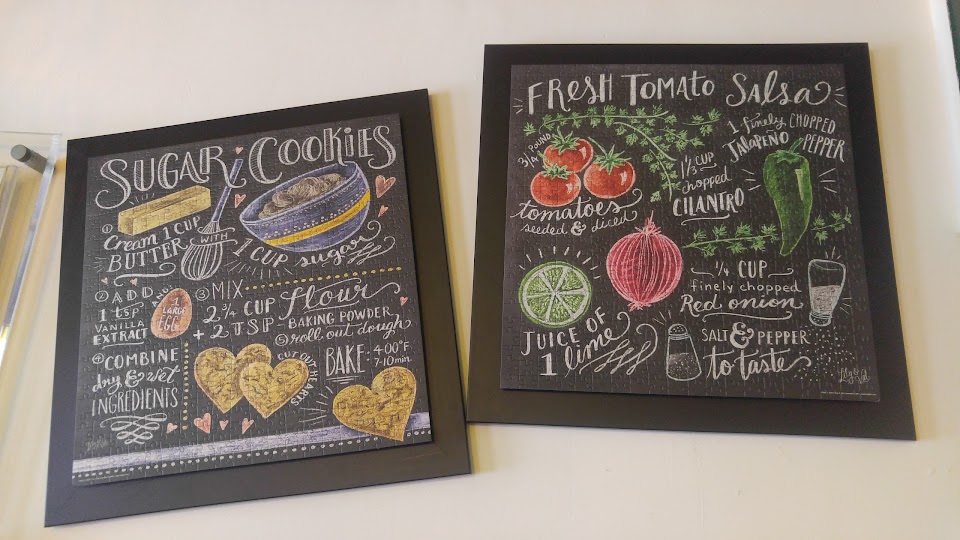 SUGAR COOKIES
① Cream 1 CUP
BUTTER WITH
1 CUP sugar
② ADD
1 tsp
VANILLA
EXTRACT
AND
1
LARGE
EGG
③ MIX
2 3/4 CUP flour
+ 2 TSP BAKING POWDER
④ COMBINE
dry & wet
INGREDIENTS
⑤ roll out dough
CUT OUT HEARTS
BAKE 400°F
7-10 min
FRESH TOMATO SALSA
3/4 POUND
tomatoes
seeded & diced
1/3 CUP
chopped
CILANTRO
1 finely CHOPPED
JALAPEÑO PEPPER
1/4 CUP
finely chopped
Red onion
JUICE OF
1 lime
SALT & PEPPER
to taste
Lily & Val